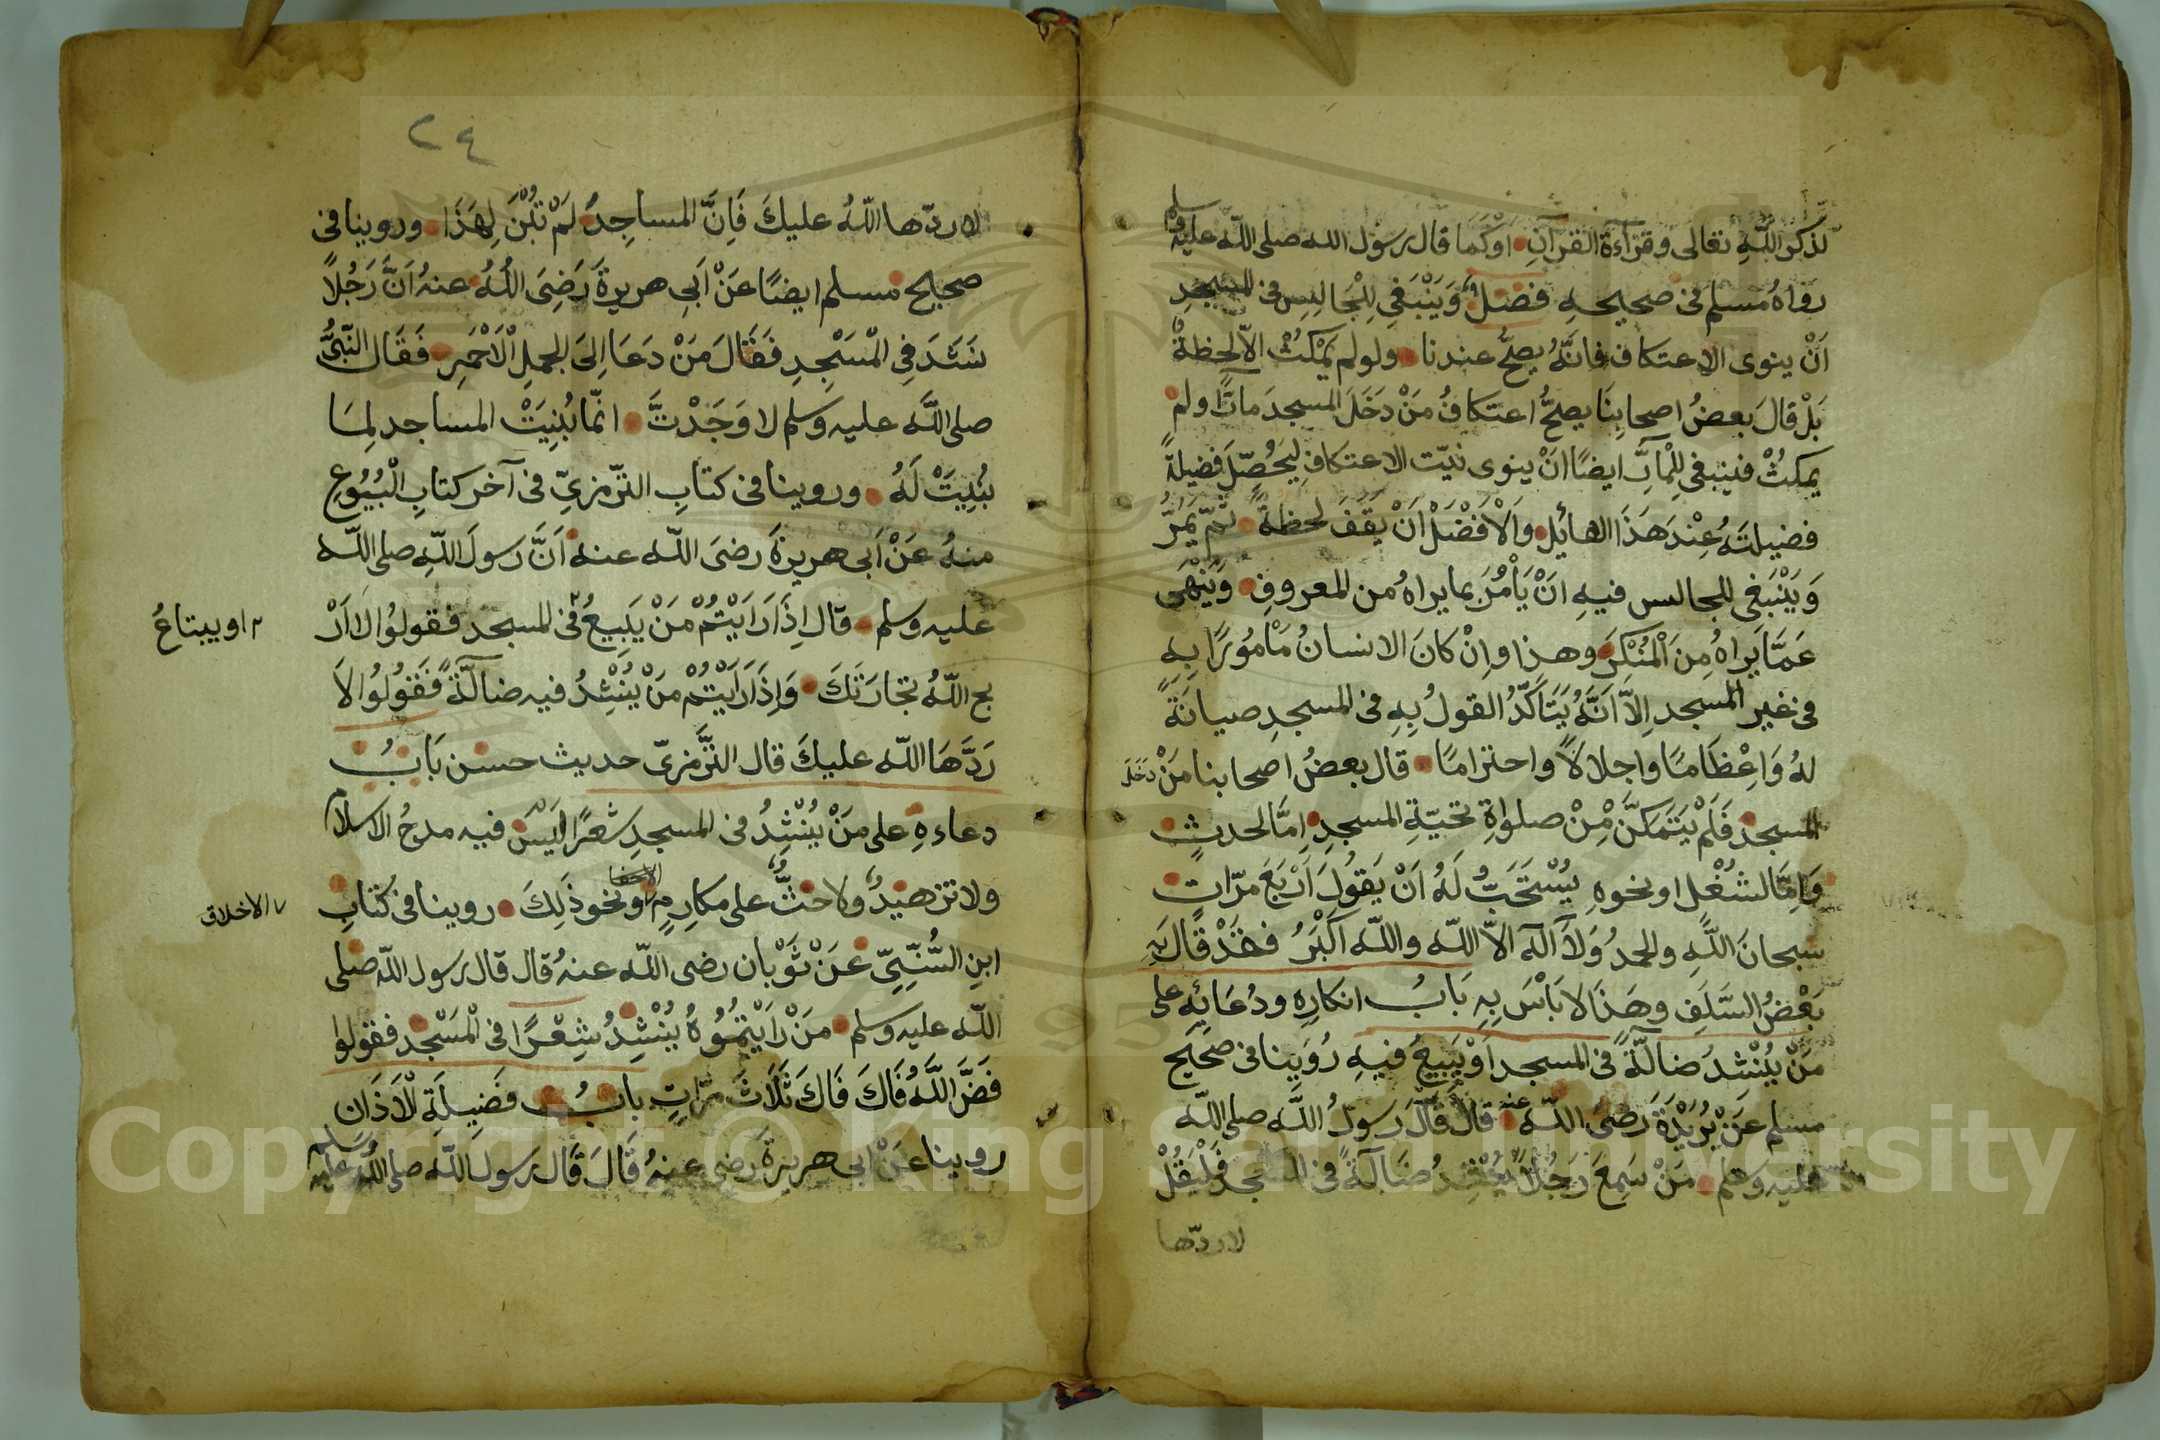 لذكر اللّهِ تعالى وقرآءة القرآنِ اوكَمَا قال رسول الله صلى اللّه عليه وسلم
رواهُ مسلم فى صحيحهِ فصلٌ وَيَنْبَغى لِلْجالِسِ فى المسجدِ
اَنْ ينوى الاعتكاف فانّهُ يصحُّ عندنا ولو لم يَمْكُثْ الاّ لحظةً
بَلْ قالَ بعضُ اصحابِنَا يصحُّ اعتكافُ مَنْ دَخَلَ المسجدَ مارًّا ولم
يمكثْ فينبغى لِلْمارِّ ايضًا انْ ينوى نيّت الاعتكافِ ليَحُصّلَ فضيلةً
فضيلتَهُ عِنْدَ هَذَا القائِلِ وَالْاَفْضَلُ اَنْ يَقِفَ لحظةً ثمّ يَمُرَّ
وَيَنْبَغى للجالس فيهِ انْ يَاْمُرَ بما يراهُ من المعروفِ وَيَنْهَى
عَمَّا يَرَاهُ مِنَ الْمُنْكَرِ وهذا وانْ كانَ الانسانُ مَاْمُورًا بِهِ
فى غير المسجد اِلاَّ اَنَّهُ يَتَاَكَّدُ القولُ بِهِ فى المسجدِ صيانَةً
لهُ وَاِعْظَامًا واجلالاً واحترامًا قال بعضُ اصحابنا مَنْ دَخَلَ
المسجدَ فَلَمْ يَتَمَكَّنْ مِنْ صلواةِ تحيّةِ المسجدِ اِمَّا لحدثٍ
وَاِمَّا لشغْلٍ اونحوهِ يُسْتَحَبُّ لَهُ اَنْ يَقُولَ اَرْبَعَ مرّاتٍ
سبحانَ اللّهِ والحمدُ وَلآ اله الاّ اللّه واللّه اَكْبَرُ فقدْ قَالَ بِهِ
بَعْضُ السَّلَفِ وهَذَا لا بَاْسَ بِهِ بَابُ انكارِهِ ودُعَائِهِ على
مَنْ يُنْشدُ ضالّةً فى المسجد اَوْ يَبِيعُ فيهِ رُوَينا فى صَحيح
مسلم عَنْ بُرَيْدَةَ رَضِىَ اللّه عنه قال قالَ رسولُ اللّه صلى اللّه
عليه وسلم مَنْ سَمِعَ رَجُلاً يُنْشِدُ ضَالّةً فى المسجد فَلْيَقُلْ
لا ردّها
٢٤
لا ردّها اللّهُ عليكَ فَاِنَّ المساجِدَ لَمْ تُبْنَ لِهَذَا وروينا فى
صحيح مسلم ايضًا عَنْ اَبى هريرةَ رَضِىَ اللّهُ عنهُ اَنَّ رَجُلاً
نَشَدَ فِى الْمَسْجِدِ فَقَالَ مَنْ دَعَا اِلىَ الجملِ الْاَحْمَرِ فَقَال النّبىُّ
صلى اللّه عليه وسلم لا وَجَدْتَ انّما بُنِيَتْ المساجد لِمَا
بُنِيَتْ لَهُ وروينا فى كتابِ الترّمزىّ فى آخر كتابِ الْبُيُوعِ
منهُ عَنْ اَبى هريرةَ رضىَ اللّه عنه اَنَّ رَسولَ اللّهِ صلى اللّه
عليه وسلم قال اِذَا رَاَيْتُمْ مَنْ يَبِيعُ فى المسجد فقولوُا لاَ اَرْ
٢ او يبتاعُ
بح اللّهُ تجارَتَكَ وَاِذَا رَاَيْتُمْ مَنْ يُنْشِدُ فيه ضالّةً فَقُولُوا لاَ
رَدَّهَا اللّه عليكَ قال الترَّمزىّ حديث حسن بَابُ
دعاءهِ على مَنْ يُنْشِدُ فى المسجدِ شعرًا لَيْسَ فيه مدحُ الاسلامِ
ولا تزهيدٌ ولا حثٌّ على مكارِمِ اونحوذَلِكَ روينا فى كتابِ
٧ الاخلاق
ابنِ السُّنِّيِّ عَنْ ثَوْبان رضى اللّه عنهُ قال قال رسول اللّه صلى
اللّه عليه وسلم مَنْ رَاَيْتُمُوهُ يُنْشِدُ شِعْرًا فى الْمَسْجِد فقولوا
فَضَّ اللَّهُ فَاكَ فَاكَ ثَلَاثَ مرّاتٍ بابُ فَضِيلَةِ الْاَذَان
روينا عَنْ ابى هريرةَ رضى عنهُ قَالَ قَال رسول اللّه صلى اللّه عليه وسلم
Copyright © King Saud University